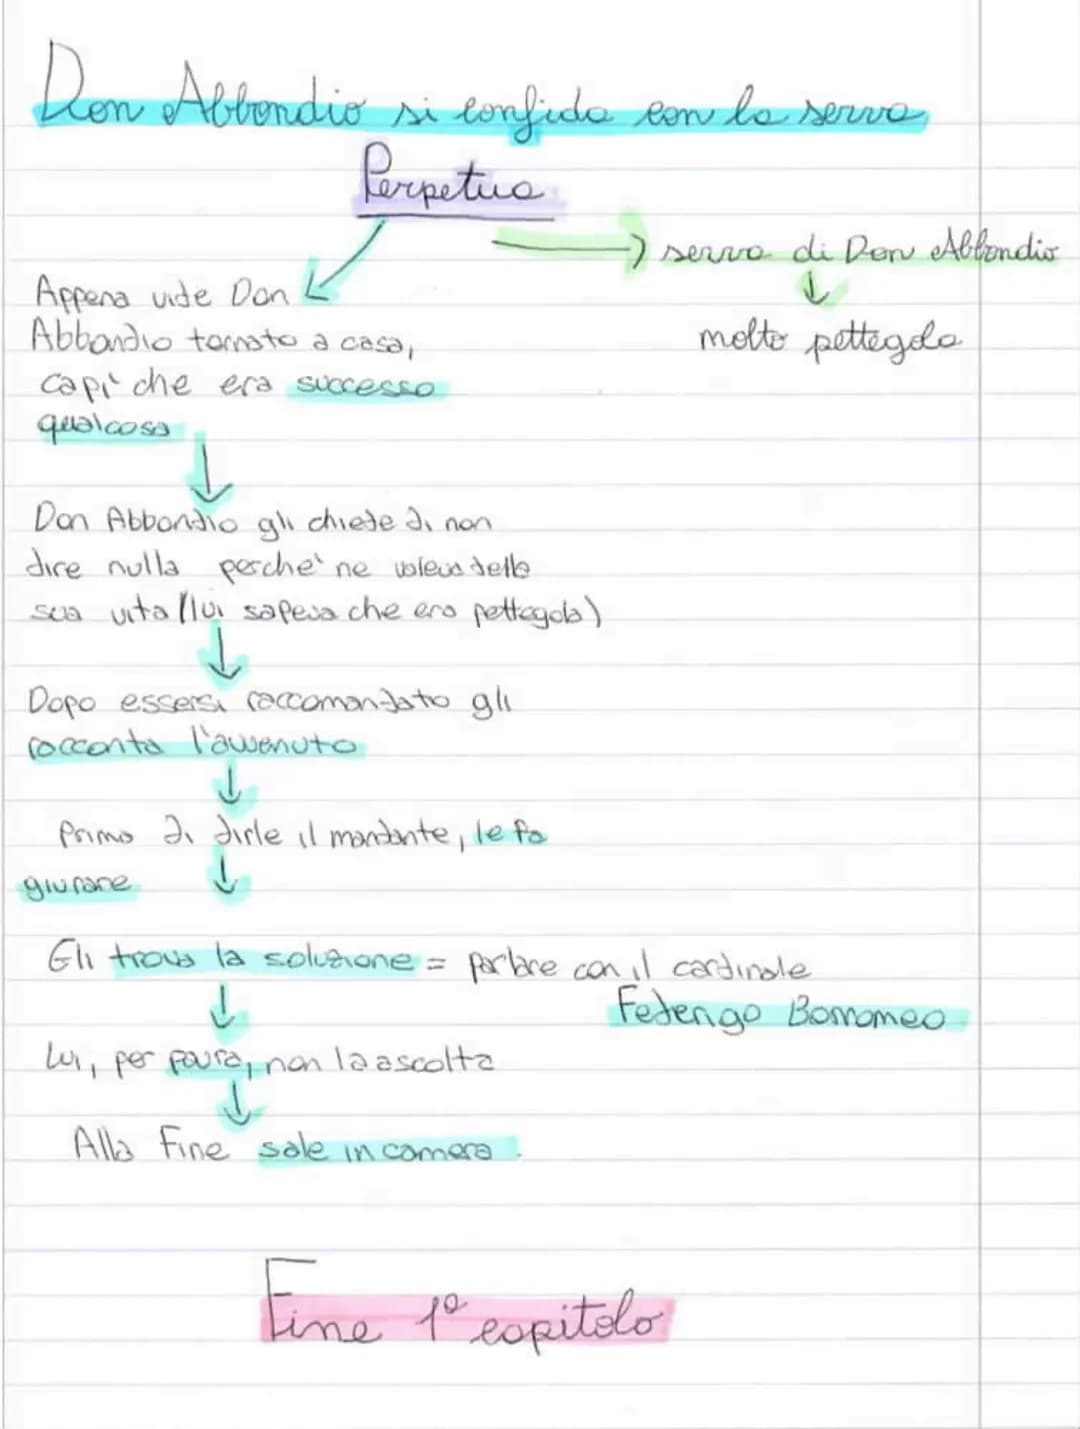 Don Abbondio si confida con la serva
Perpetua
serva di Don Abbondio
molto pettegola
Appena vide Don
Abbondio tornato a casa,
capì che era successo
qualcosa
Don Abbondio gli chiede di non
dire nulla perché ne voleva della
sua vita (lui sapeva che era pettegola)
Dopo essersi raccomandato gli
racconta l'avvenuto
Prima di dirle il mandante, le fa
giurare
Gli trova la soluzione = parlare con il cardinale
Federigo Borromeo
Lui, per paura, non la ascolta
Alla Fine sale in camera.
Fine 1° capitolo